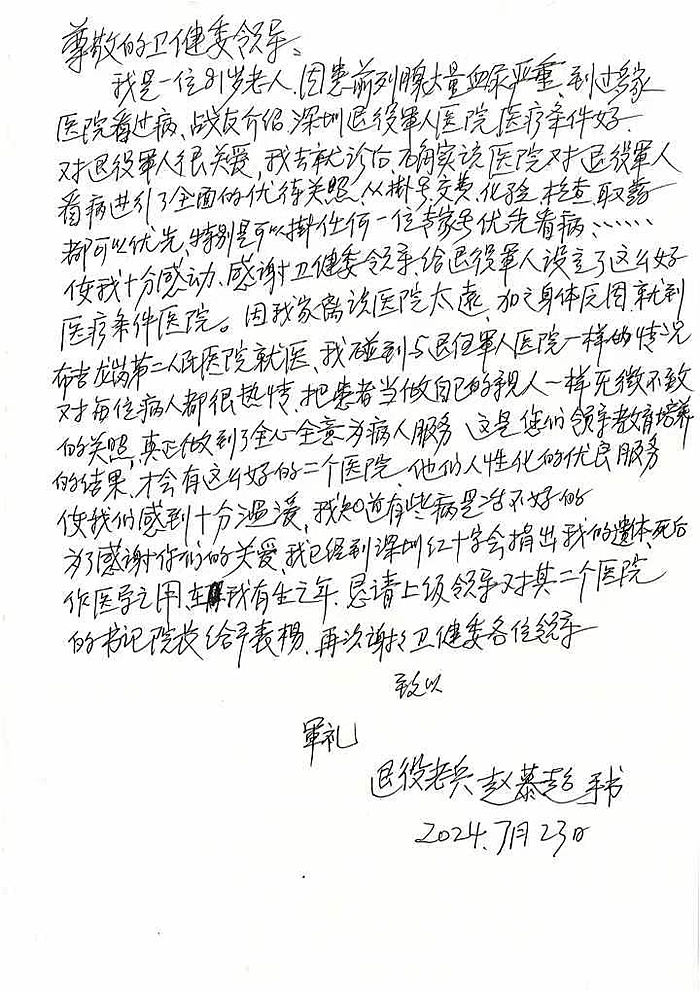 尊敬的卫健委领导：
我是一位81岁老人，因患前列腺大量血尿严重，到过多家
医院看过病，战友介绍深圳退役军人医院，医疗条件好，
对退役军人很关爱，我去就诊后，确实该医院对退役军人
看病进行了全面的优待关照，从掛号，交费，化验，检查，取药
都可以优先，特别是可以掛任何一位专家号优先看病，……
使我十分感动，感谢卫健委领导，给退役军人设立了这么好
医疗条件医院。因我家离该医院太远，加之身体原因，就到
布吉龙岗第二人民医院就医，我碰到与退役军人医院一样的情况
对每位病人都很热情，把患者当做自己的亲人一样无微不致
的关照，真正做到了全心全意为病人服务，这是您们领导教育培养
的结果，才会有这么好的二个医院，他们人性化的优良服务
使我们感到十分温暖，我知道有些病是治不好的
为了感谢你们的关爱，我已经到深圳红十字会捐出我的遗体，死后
作医学之用，在我有生之年，恳请上级领导对其二个医院
的书记院长给予表杨，再次谢谢卫健委各位领导
致以
军礼
退役老兵 赵慕 手书
2024.7月23日